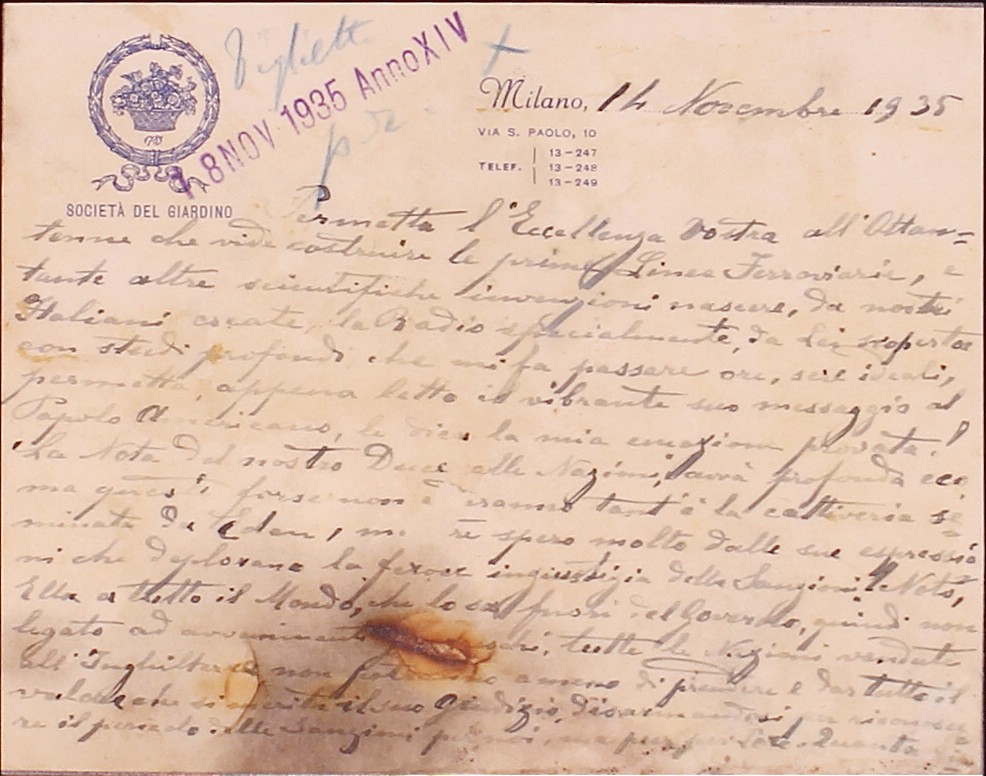 Biglietto
18 NOV 1935 Anno XIV
Milano, 14 Novembre 1935
VIA S. PAOLO, 10
TELEF. 13-247
13-248
13-249
SOCIETÀ DEL GIARDINO
Permetta l'Eccellenza Vostra all'Ottan=
tenne che vide costruire le prime Linee Ferroviarie, e
tante altre scientifiche invenzioni nascere, da nostri
Italiani create, la Radio specialmente, da Lei scoperta
con studi profondi che mi fa passare ore, sere ideali,
permetta, appena letto il vibrante suo messaggio al
Popolo Americano, le dica la mia emozione provata!
La Nota del nostro Duce alle Nazioni, avrà profonda eco
ma questi forse non tant'è la cattiveria se
minata da Eden, ma spero molto dalle sue espressio
ni che deplorano la feroce ingiustizia delle Sanzioni! Noto,
Ella a tutto il Mondo, che lo sa fuori del Governo, quindi non
legato ad tutte le Nazioni vendute
all'Inghilterra non a meno di prendere e dar tutto il
valore che si merita il suo Giudizio, disarmandosi per riconosce
re il pericolo delle Sanzioni per noi, ma per Quanto